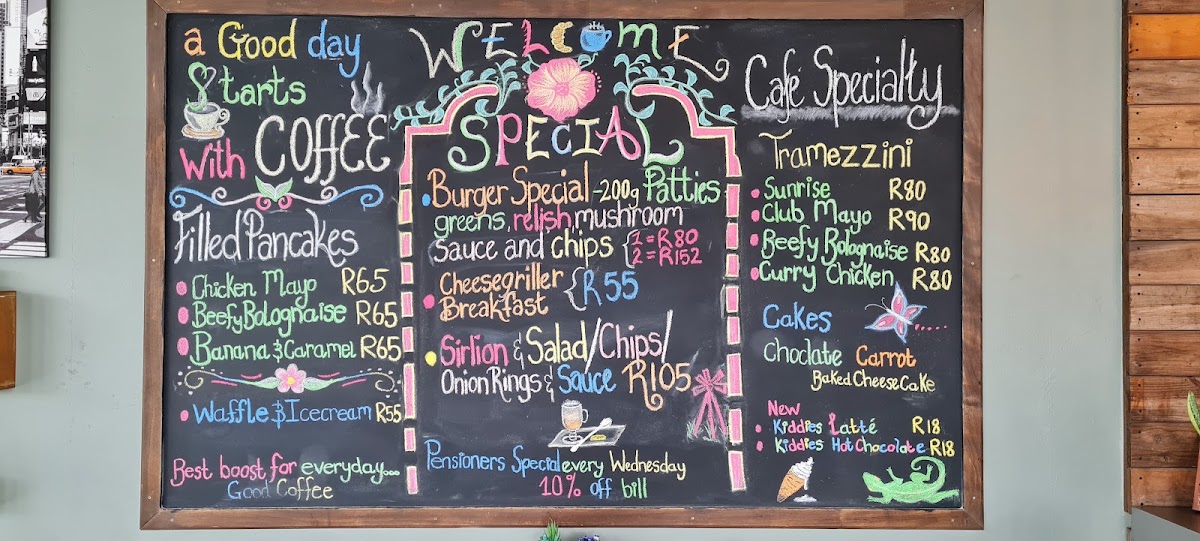 a Good day
Starts
With COFFEE
Filled Pancakes
Chicken Mayo R65
Beefy Bolognaise R65
Banana & Caramel R65
Waffle & Icecream R55
Best boost for everyday...
Good Coffee
WELCOME
SPECIAL
Burger Special - 200g Patties
greens, relish, mushroom
sauce and chips { 1 = R80
2 = R152
Cheesegriller
Breakfast { R55
Sirlion & Salad/Chips/
Onion Rings & Sauce R105
Pensioners Special every Wednesday
10% off bill
Café Specialty
Tramezzini
Sunrise R80
Club Mayo R90
Beefy Bolognaise R80
Curry Chicken R80
Cakes
Choclate Carrot
Baked Cheese Cake
New
Kiddies Latté R18
Kiddies Hot Chocolate R18